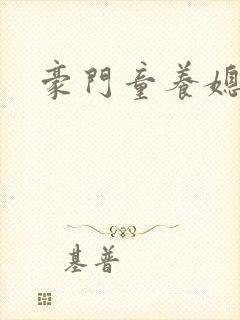 豪門童養媳
基普